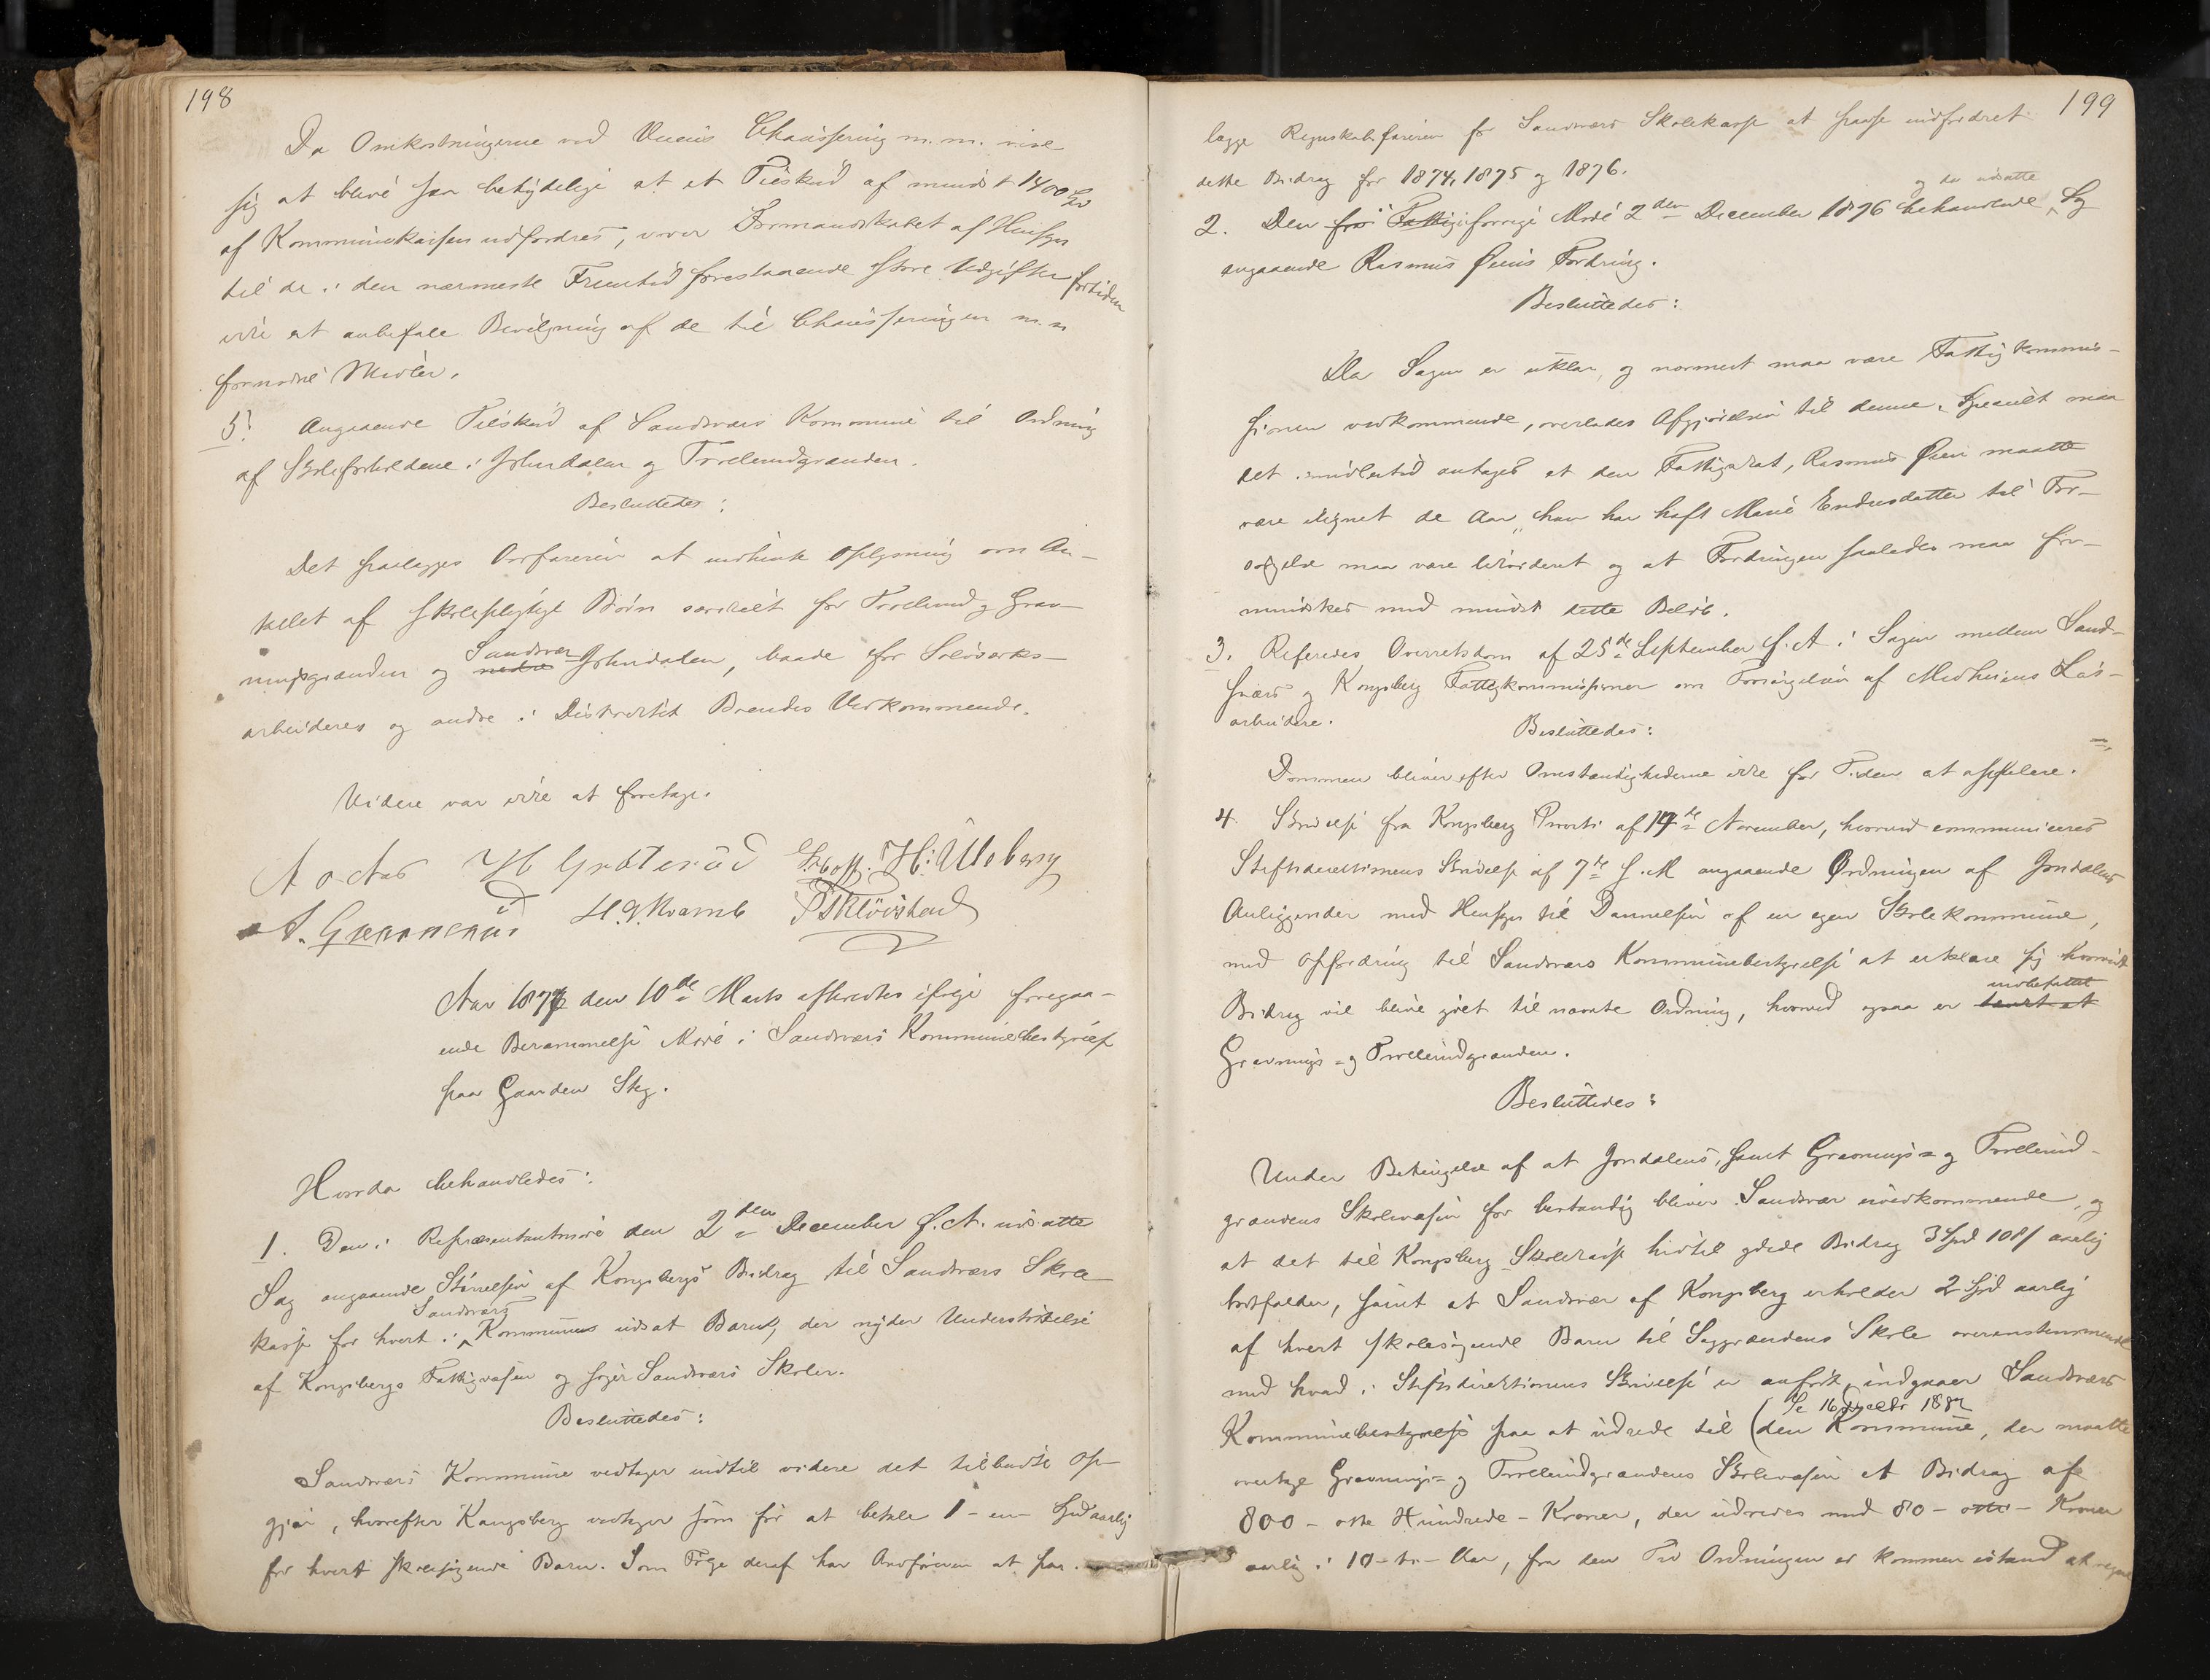 198
Da Omkostningerne ved Veiens Chaussering m.m. vise
sig at blive saa betydelige at et Tilskud af mindst 1400
af Kommunekassen udfordres, vover Formandskabet af Hensyn
til de i den nærmeste Fremtid forestaaende store Udgifter fortiden
ikke at anbefale Bevilgning af de til Chausseringen m.m
fornødne Midler.
5. Angaaende Tilskud af Sandsværs Kommune til Ordning
af Skoleforholdene i Johndalen og Trollerudgranden.
Besluttedes:
Det paalægges Ordføreren at indhente Oplysning om An-
tallet af skolepligtige Børn særskilt for Trollerud og Grav-
ningsgranden og nedre Sandsvær Johndalen, baade for Sølvværks-
arbeideres og andre i Distriktet Boendes Vedkommende.
Videre var ikke at foretage.
A o Aas H Grøterud H: Ulsberg
A. H. J. Kvamb P Skløvstad
Aar 1877 den 10de Marts afholdtes ifølge foregaa-
ende Berammelse Møde i Sandsværs Kommunebestyrelse
paa Gaarden Steg.
Hvorda behandledes:
1. Den i Repræsentantmøde den 2den December f. A. udsatte
Sag angaaende Størrelsen af Kongsbergs Bidrag til Sandsværs Skole-
kasse for hvert i Sandsværs Kommune udsat Barn, der nyder Understøttelse
af Kongsbergs Fattigvæsen og søger Sandsværs Skoler.
Besluttedes:
Sandsværs Kommune vedtager indtil videre det tilbudte Op-
gjør, hvorefter Kongsberg vedtager som før at betale 1 - en - Spd aarlig
for hvert skolesøgende Barn. Som Følge deraf har Ordføreren at paa-
199
lægge Regnskabsføreren for Sandsværs Skolekasse at faa indfordret
dette Bidrag for 1874, 1875 og 1876.
2. Den i forrige Møde 2den December 1876 behandlede og da udsatte Sag
angaaende Rasmus Øiens Fordring.
Besluttedes:
Da Sagen er uklar, og nærmest maa være Fattigkommis-
sionen vedkommende, overlades Afgjørelsen til denne. Specielt maa
det imidlertid antages at den Fattigskat, Rasmus Øien maatte
være ilignet de Aar, han har haft Marie Endresdatter til For-
sørgelse maa være likvideret og at Fordringen saaledes maa for-
mindskes med mindst dette Beløb.
3. Referedes Overretsdom af 25de September f. A. i Sagen mellem Sand-
sværs og Kongsberg Fattigkommissioner om Forsørgelsen af Medheiens Løs-
arbeidere.
Besluttedes:
Dommen bliver efter Omstændighederne ikke for Tiden at appelere.
4. Skrivelse fra Kongsberg Provsti af 14de November, hvorved communiceres
Stiftsdirektionens Skrivelse af 7de s. M angaaende Ordningen af Jondalens
Anliggender med Hensyn til Dannelsen af en egen Skolekommune,
med Opfordring til Sandsværs Kommunebestyrelse at erklære sig hvorvidt
Bidrag vil blive ydet til nævnte Ordning, hvorved ogsaa er indbefattet
Gravnings- og Trollerudgranden.
Besluttedes:
Under Betingelse af at Jondalens, samt Gravnings- og Trollerud-
grandens Skolevæsen for bestandig bliver Sandsvær uvedkommende, og
at det til Kongsberg Skolekasse hidtil ydede Bidrag 3 Spd 108 ß aarlig
bortfalder, samt at Sandsvær af Kongsberg erholder 2 Spd aarlig
af hvert skolesøgende Barn til Saggrændens Skole overensstemmende
med hvad i Stiftsdirektionens Skrivelse er anført, indgaaer Sandsværs
Se 16 1882
Kommunebestyrelse paa at udrede til (den Kommune, der maatte
overtage Gravnings- og Trollerudgrandens Skolevæsen et Bidrag af
800 - otte Hundrede - Kroner, der udredes med 80 - otti - Kroner
aarlig i 10 - ti - Aar, fra den Tid Ordningen er kommen istand at regne